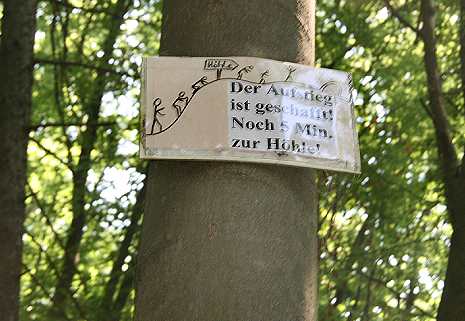 Höhle
Der Aufstieg
ist geschafft!
Noch 5 Min.
zur Höhle!